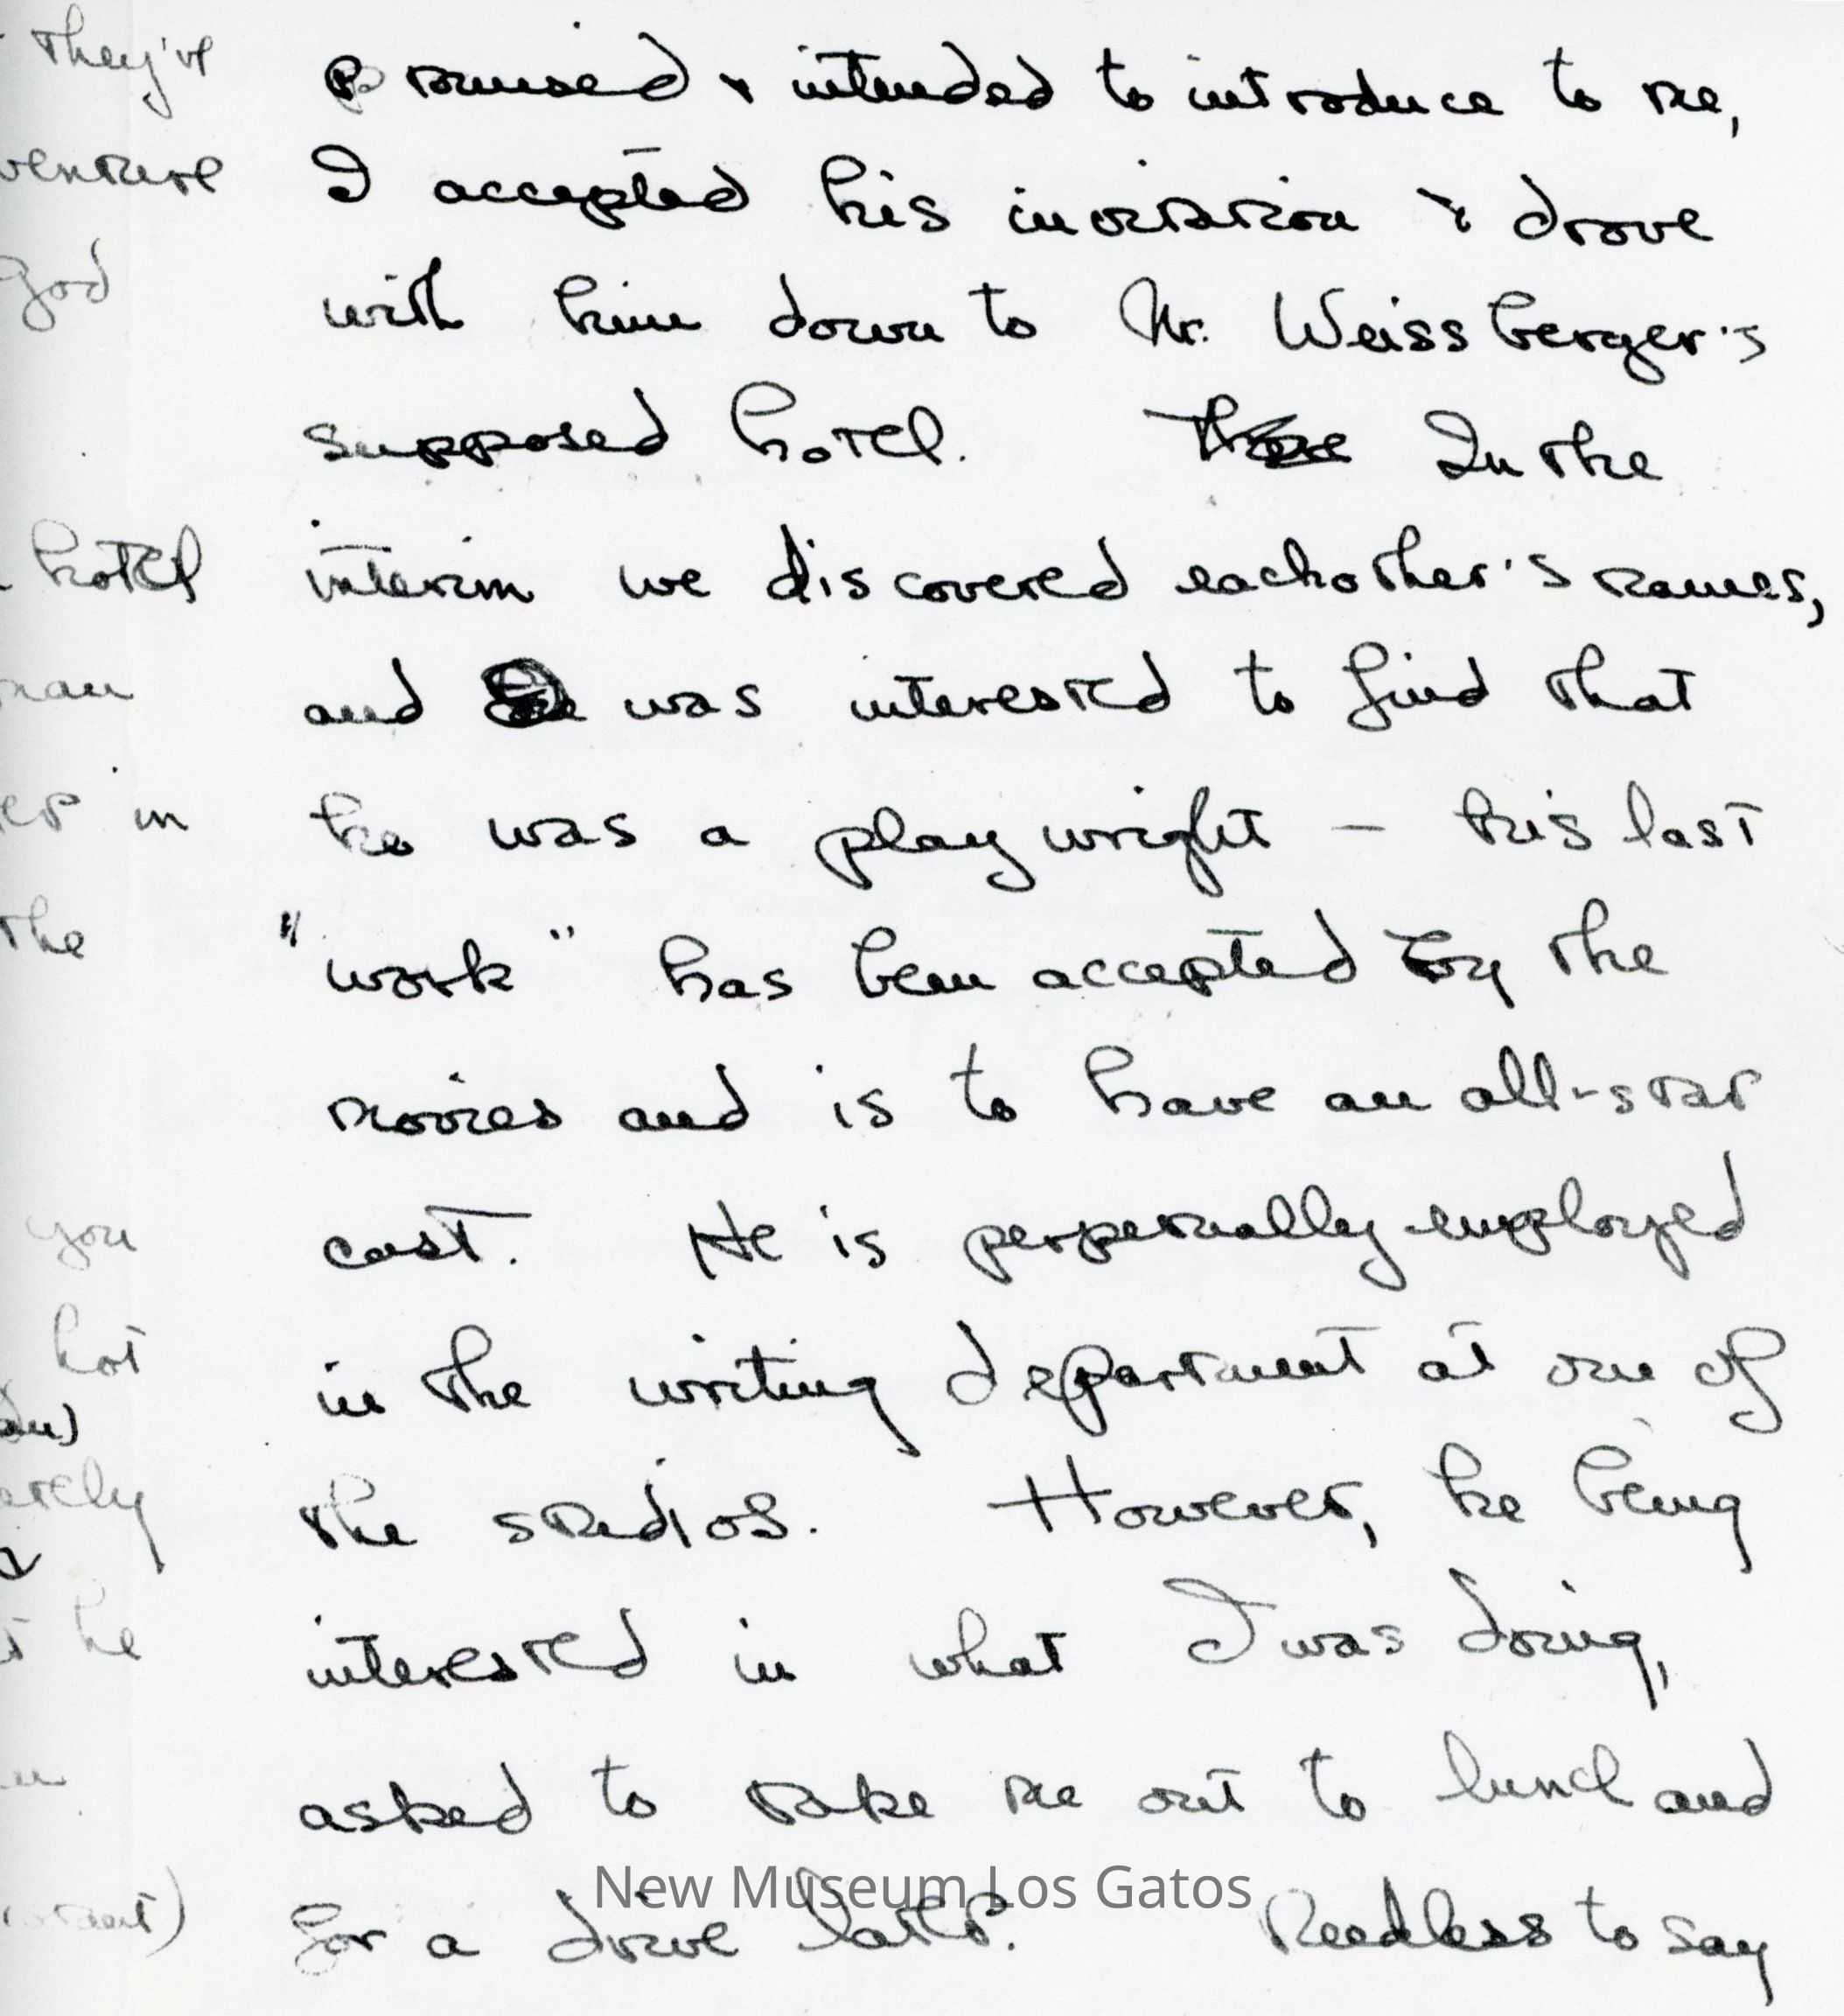 they've
venture
God
hotel
man
in
the
you
hot
he
promised & intended to introduce to me,
I accepted his invitation & drove
with him down to Mr. Weissberger's
supposed hotel. In the
interim we discovered eachother's names,
and was interested to find that
he was a playwright – his last
"work" has been accepted by the
movies and is to have an all-star
cast. He is perpetually employed
in the writing department at one of
the studios. However, he being
interested in what I was doing,
asked to take me out to lunch and
for a drive later. Needless to say
New Museum Los Gatos